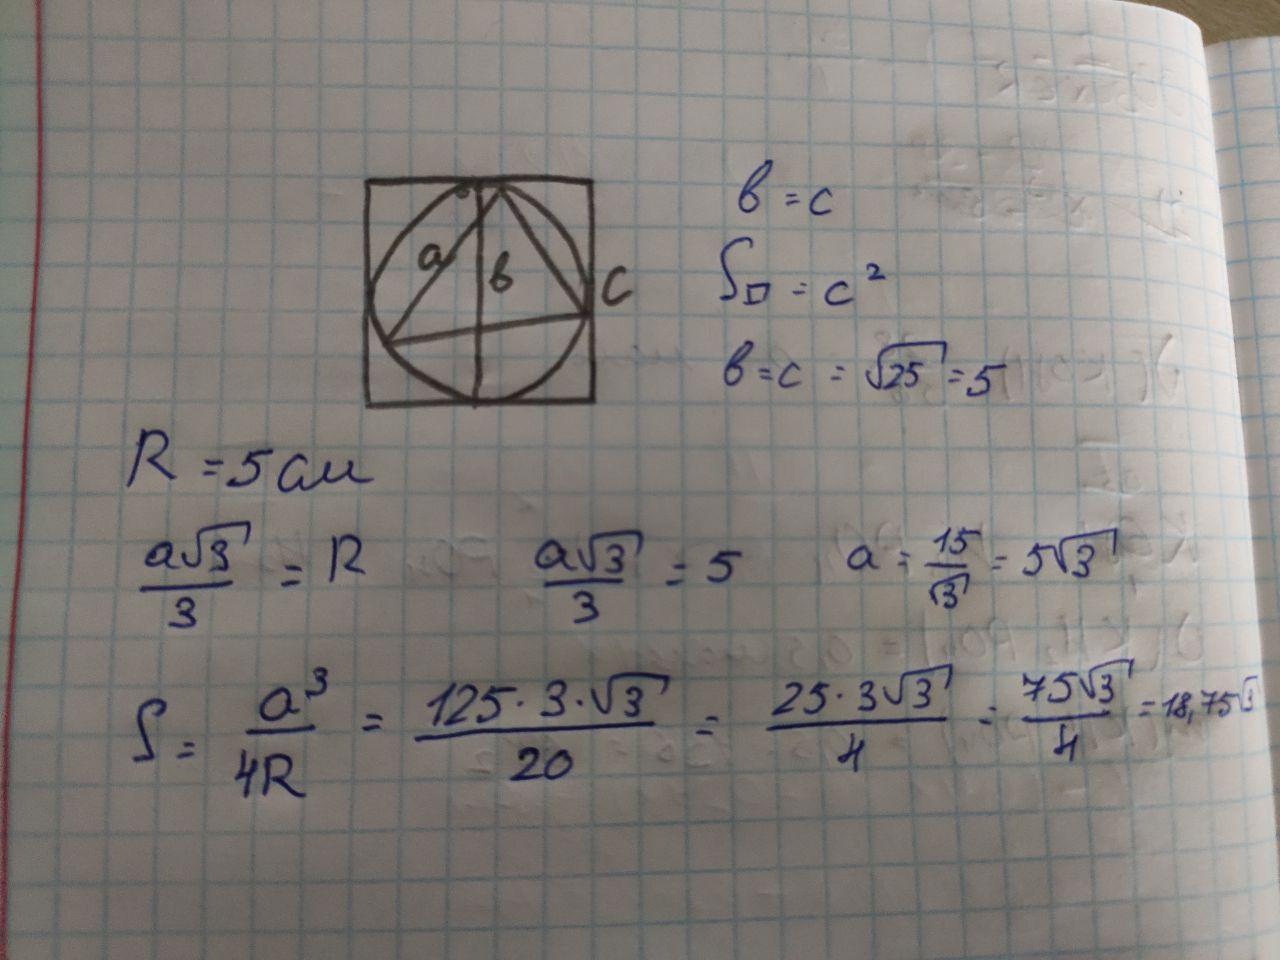 a
в
C
в = c
S□ = c²
в = c = √25 = 5
R = 5 см
a√3/3 = R a√3/3 = 5 a = 15/√3 = 5√3
S = a³/4R = 125·3·√3/20 = 25·3√3/4 = 75√3/4 = 18,75√3